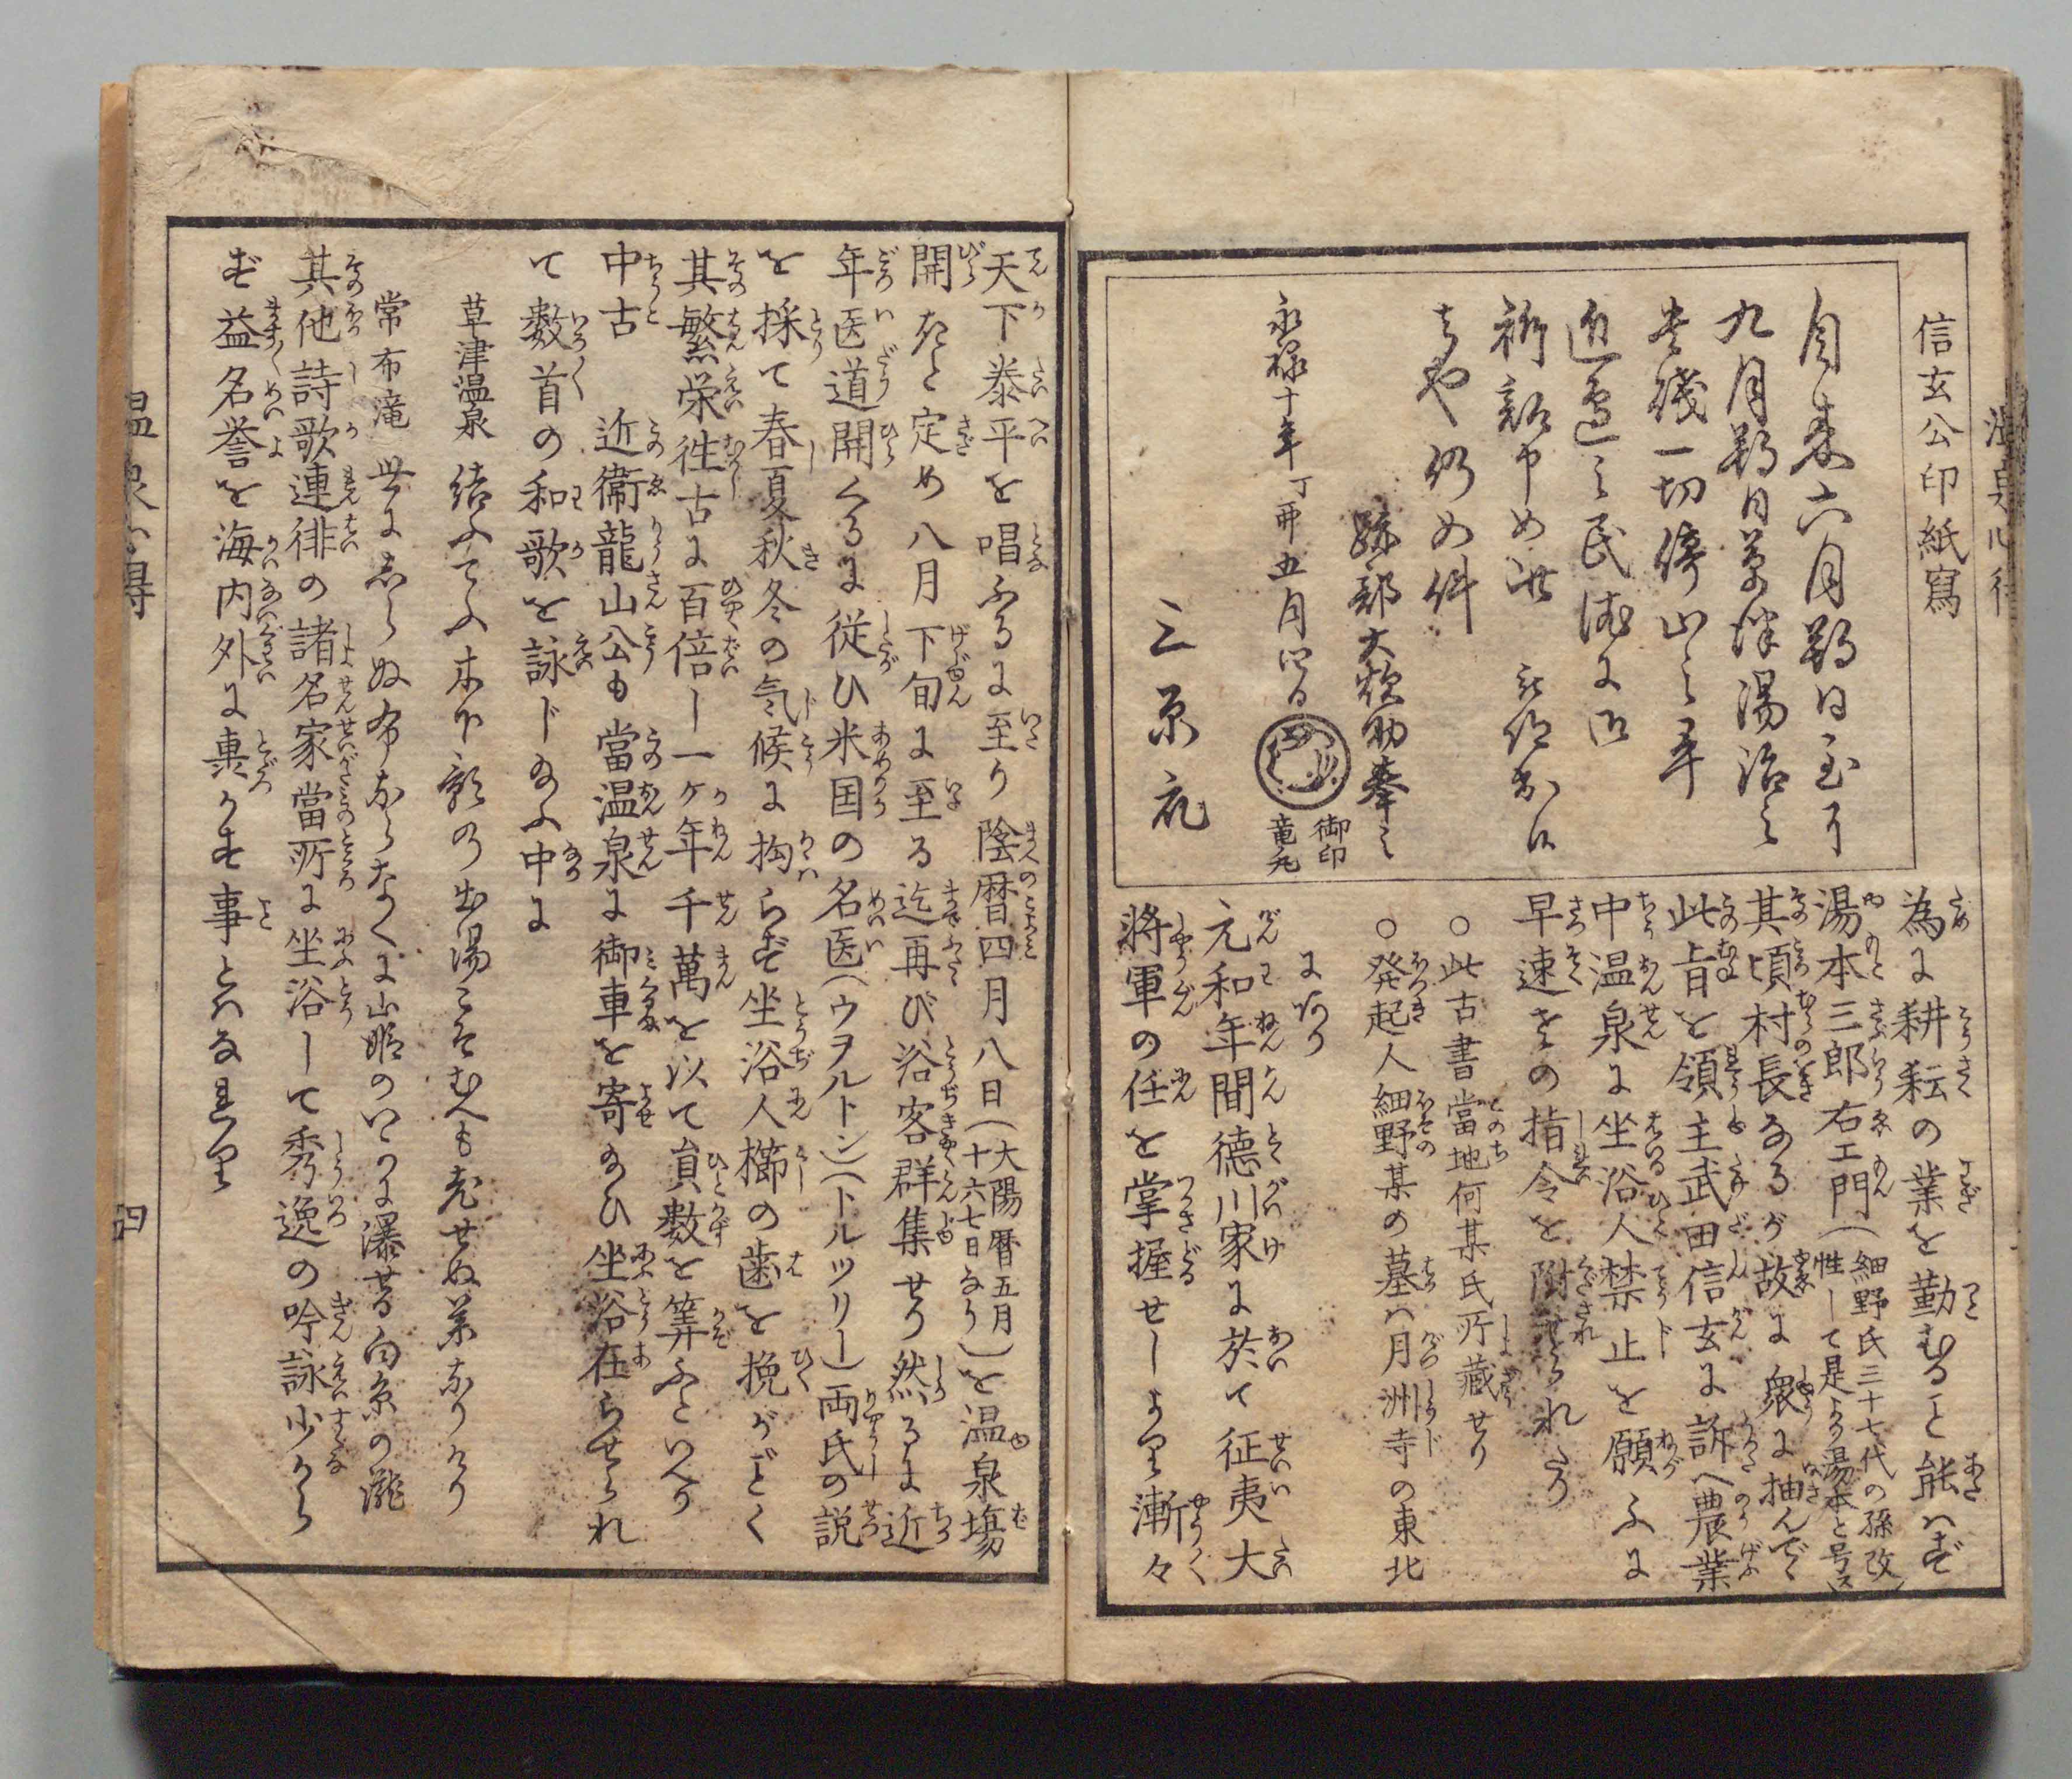 信玄公印紙寫
自来六月朔日至于
九月朔日草津湯治之
貴賤一切停山之畢
近邊之民依に御
訴訟申め此
者也仍如件
永禄十年丁卯五月四日
跡部大炊助奉之
御印
竜丸
三原衆
為に耕耘の業を勤むること能はず
湯本三郎右エ門(細野氏三十七代の孫改
性して是より湯本と号ス)
其頃村長なるが故に衆に抽んで
此旨を領主武田信玄に訴へ農業
中温泉に坐浴人禁止を願ふに
早速其の指令を附せられたり
○此古書當地何某氏所蔵せり
○発起人細野某の墓ハ月洲寺の東北
にあり
元和年間德川家に於て征夷大
將軍の任を掌握せしより漸々
天下泰平を唱ふるに至り陰暦四月八日(大陽暦五月
十六七日なり)を温泉塲
開きと定め八月下旬に至る迄再び浴客群集せり然るに近
年医道開くるに従ひ米国の名医(ウヲルトン)(トルツリー)両氏の説
を採て春夏秋冬の気候に拘らず坐浴人櫛の歯を挽がごとく
其繁栄徃古に百倍し一ケ年千萬を以て員数を筭ふといへり
中古 近衞龍山公も當温泉に御車を寄給ひ坐浴在らせられ
て数首の和歌を詠じ給ふ中に
草津温泉 結ふてふ木下影の出湯こそむへも老せぬ薬なりけり
常布滝 世にしらぬ布ならなくに山姫のいかに瀑せる白糸の瀧
其他詩歌連徘の諸名家當所に坐浴して秀逸の吟詠少から
ず益名誉を海内外に轟かす事とハなれり
温泉心得
四